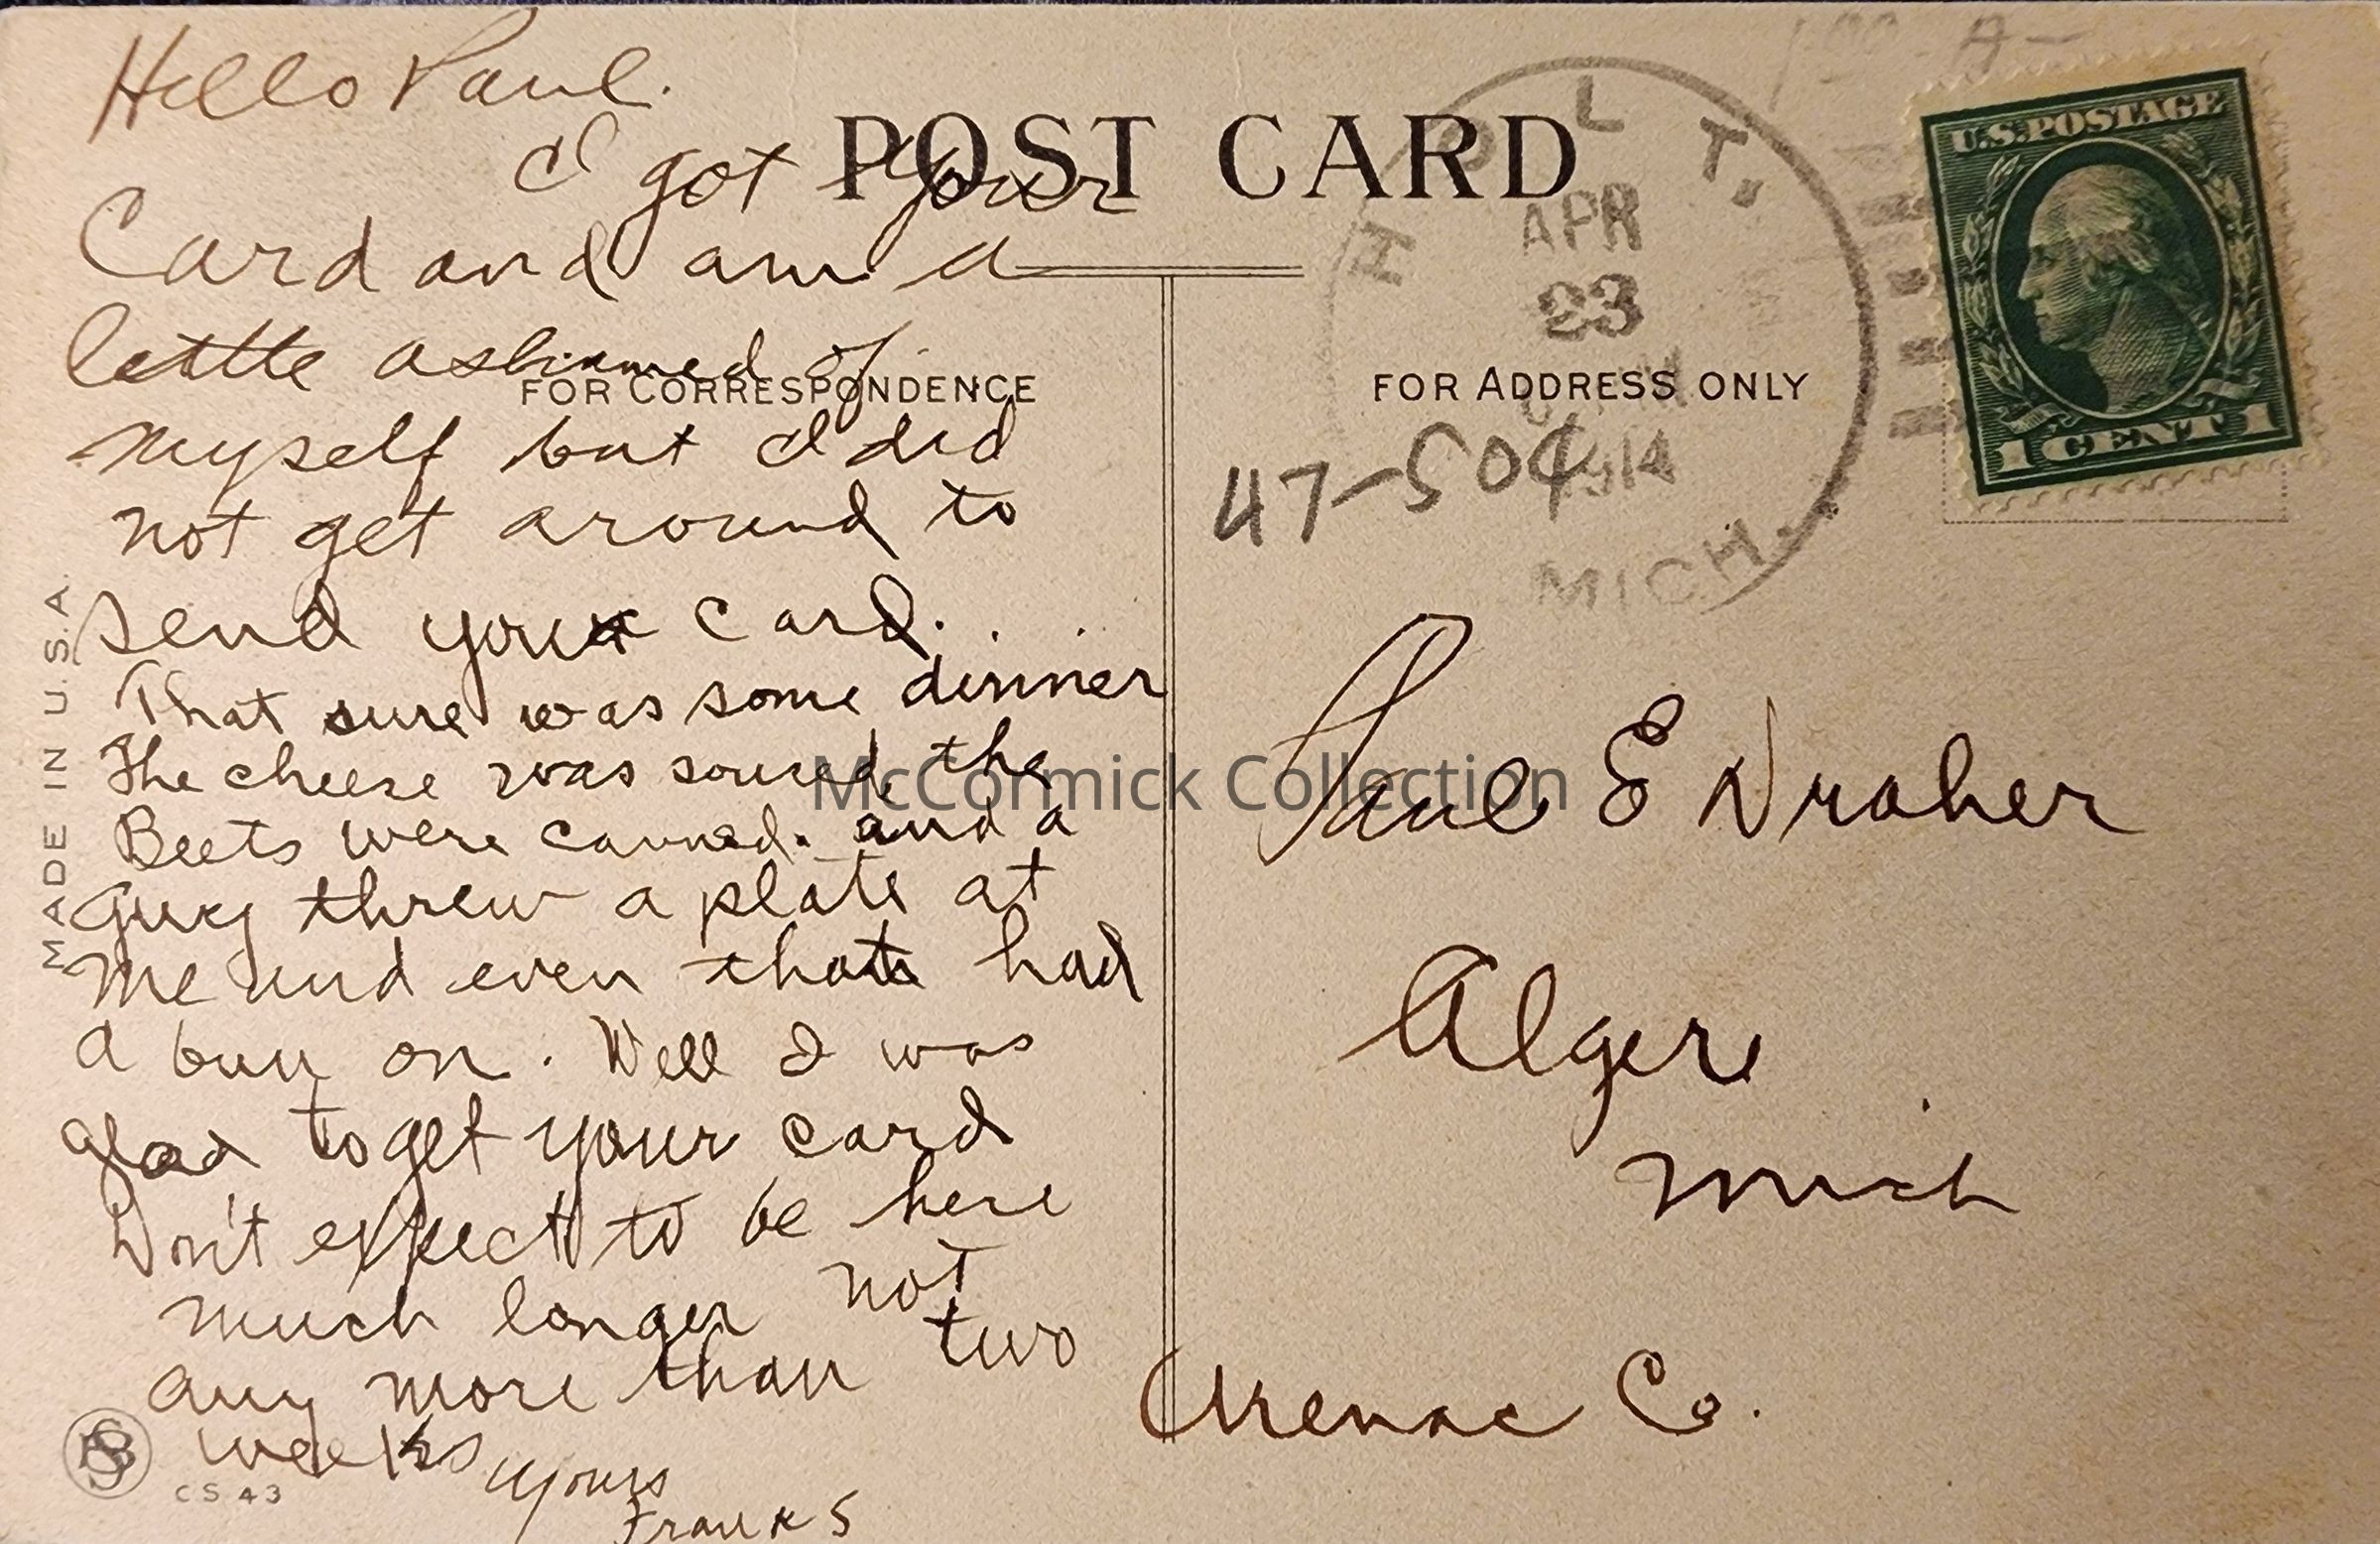 Hello Paul.
I got your
Card and am a
little ashamed of
myself but I did
not get around to
send you card.
That sure was some dinner
The cheese was soused, the
Beets were canned. and a
guy threw a plate at
me and even that had
a bun on. Well I was
glad to get your card
Don't expect to be here
much longer not
any more than two
weeks
yours
Frank S
POST CARD
FOR CORRESPONDENCE
FOR ADDRESS ONLY
MADE IN U.S.A.
CS 43
HOLT.
APR
23
1914
MICH.
47-504
U.S. POSTAGE
1 CENT 1
Paul E Draher
Alger
Mich
Arenac Co.
McCormick Collection